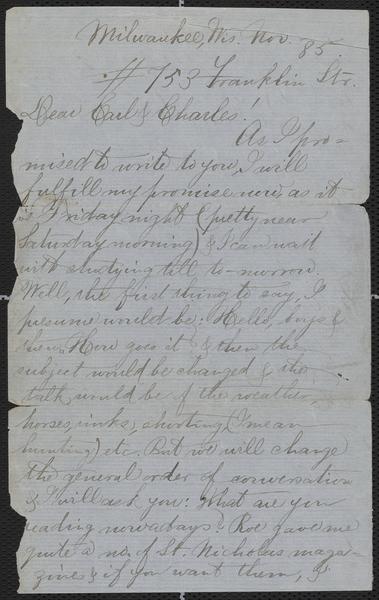 Milwaukee, Wis. Nov. 85.
# 753 Franklin Str.
Dear Carl & Charles!
As I pro-
mised to write to you, I will
fulfill my promise now, as it
is Friday night (pretty near
Saturday morning) & I can wait
with studying till to-morrow.
Well, the first thing to say, I
presume would be: Hello, boys &
then, How goes it & then the
subject would be changed & the
talk would be of the weather,
horses, rinks, shooting (I mean
hunting) etc. But we will change
the general order of conversation
& I will ask you: What are you
reading nowadays? Roe gave me
quite a no. of St. Nicholas maga-
zines & if you want them, I